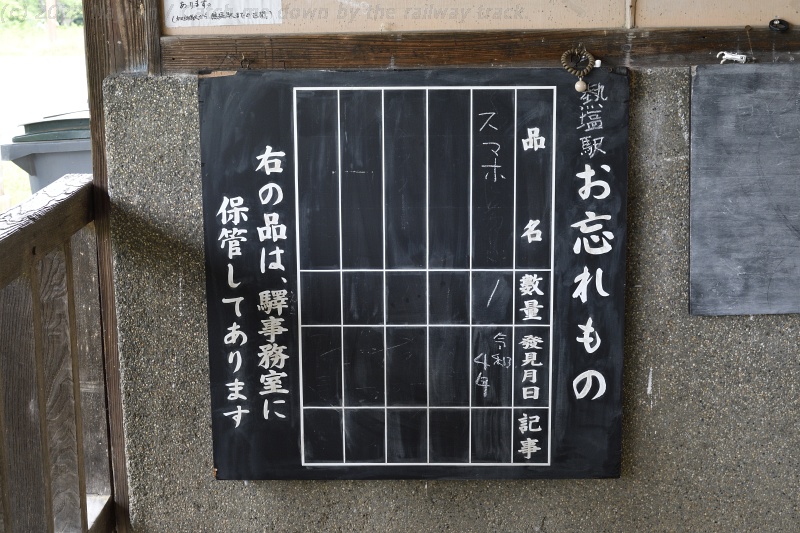 あります。
熱塩駅
お忘れもの
品名
數量
發見月日
記事
スマホ
1
令和
4年
右の品は、驛事務室に
保管してあります